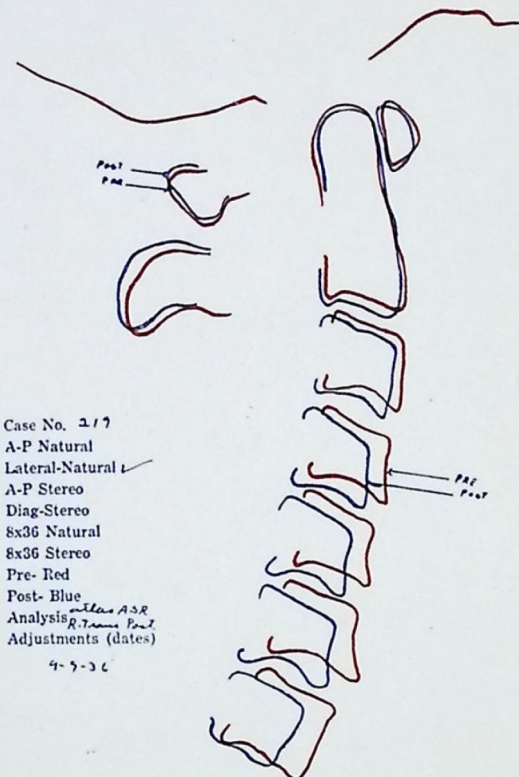 POST
PRE
Case No. 219
A-P Natural
Lateral-Natural ✓
A-P Stereo
Diag-Stereo
8x36 Natural
8x36 Stereo
Pre- Red
Post- Blue
Analysis atlas ASR
R. Trans Post.
Adjustments (dates)
PRE
POST